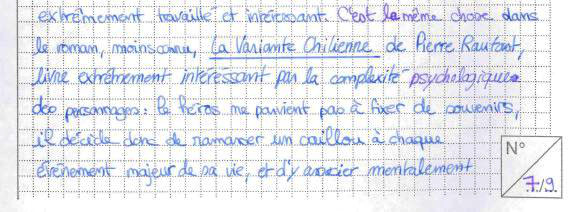 extrêmement travaillé et intéressant. C'est la même chose dans
le roman, moins connu, La Variante Chilienne de Pierre Raufast,
livre extrêmement intéressant par la complexité psychologique
des personnages : le héros ne parvient pas à fixer de souvenirs,
il décide donc de ramasser un caillou à chaque
évènement majeur de sa vie, et d'y associer mentalement
N°
7/9